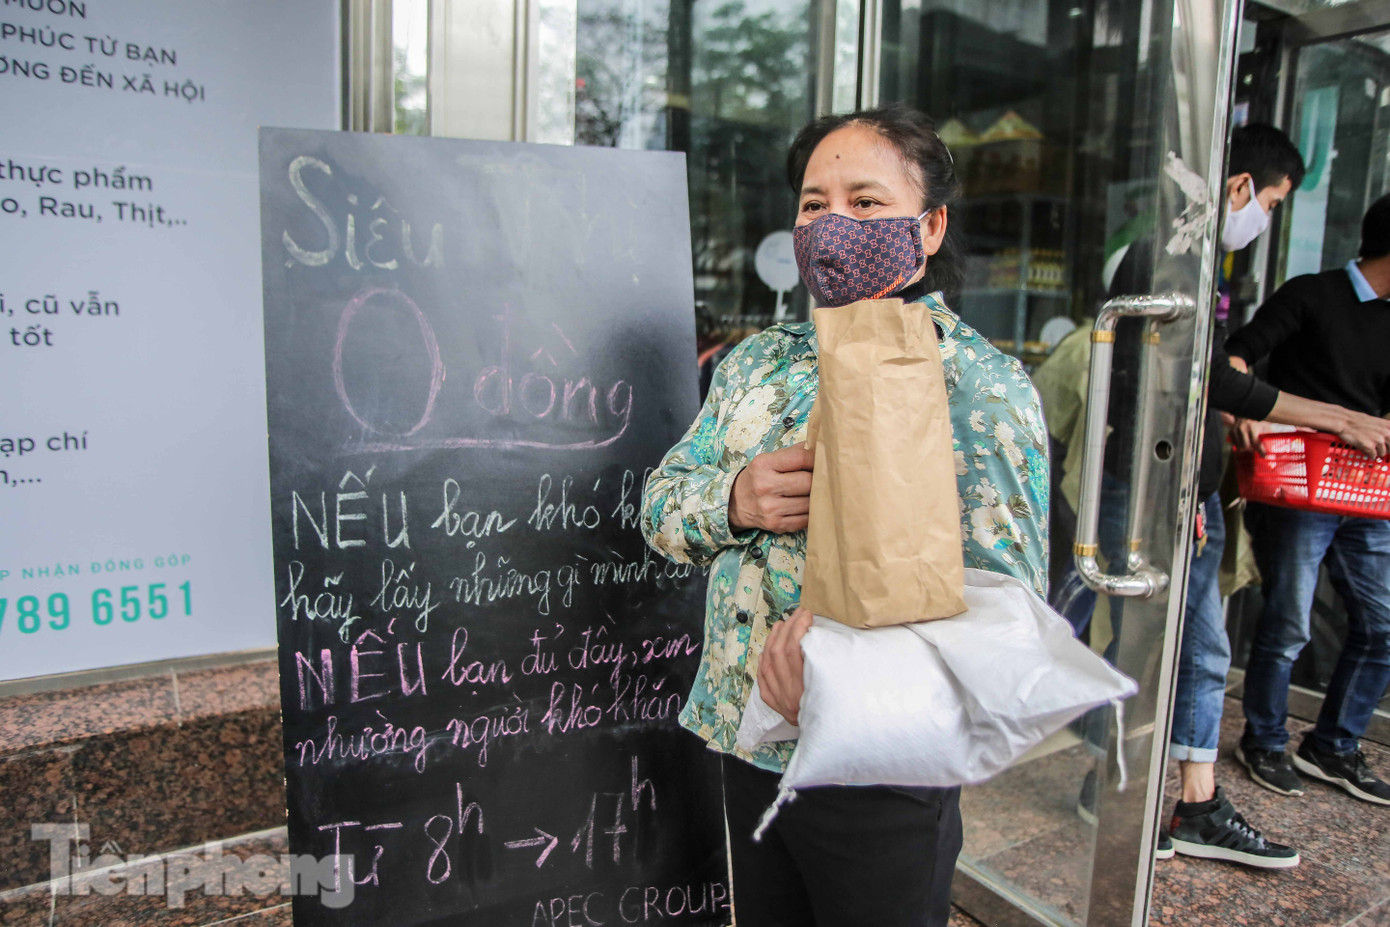 MUỐN
PHÚC TỪ BẠN
ĐẾN XÃ HỘI
thực phẩm
Rau, Thịt,..
cũ vẫn
tốt
chí
NHẬN ĐÓNG GÓP
789 6551
Siêu
0 đồng
NẾU bạn khó
hãy lấy những gì mình
NẾU bạn đủ đầy, xin
nhường người khó khăn
Từ 8h → 17h
APEC GROUP
Tiênphong